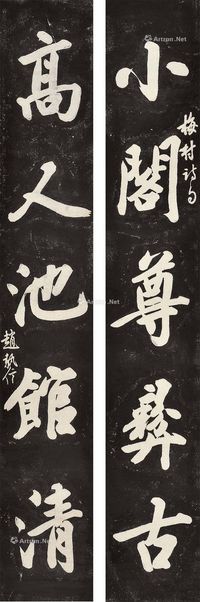 小閣尊彝古
梅村詩句
高人池館清
趙執信